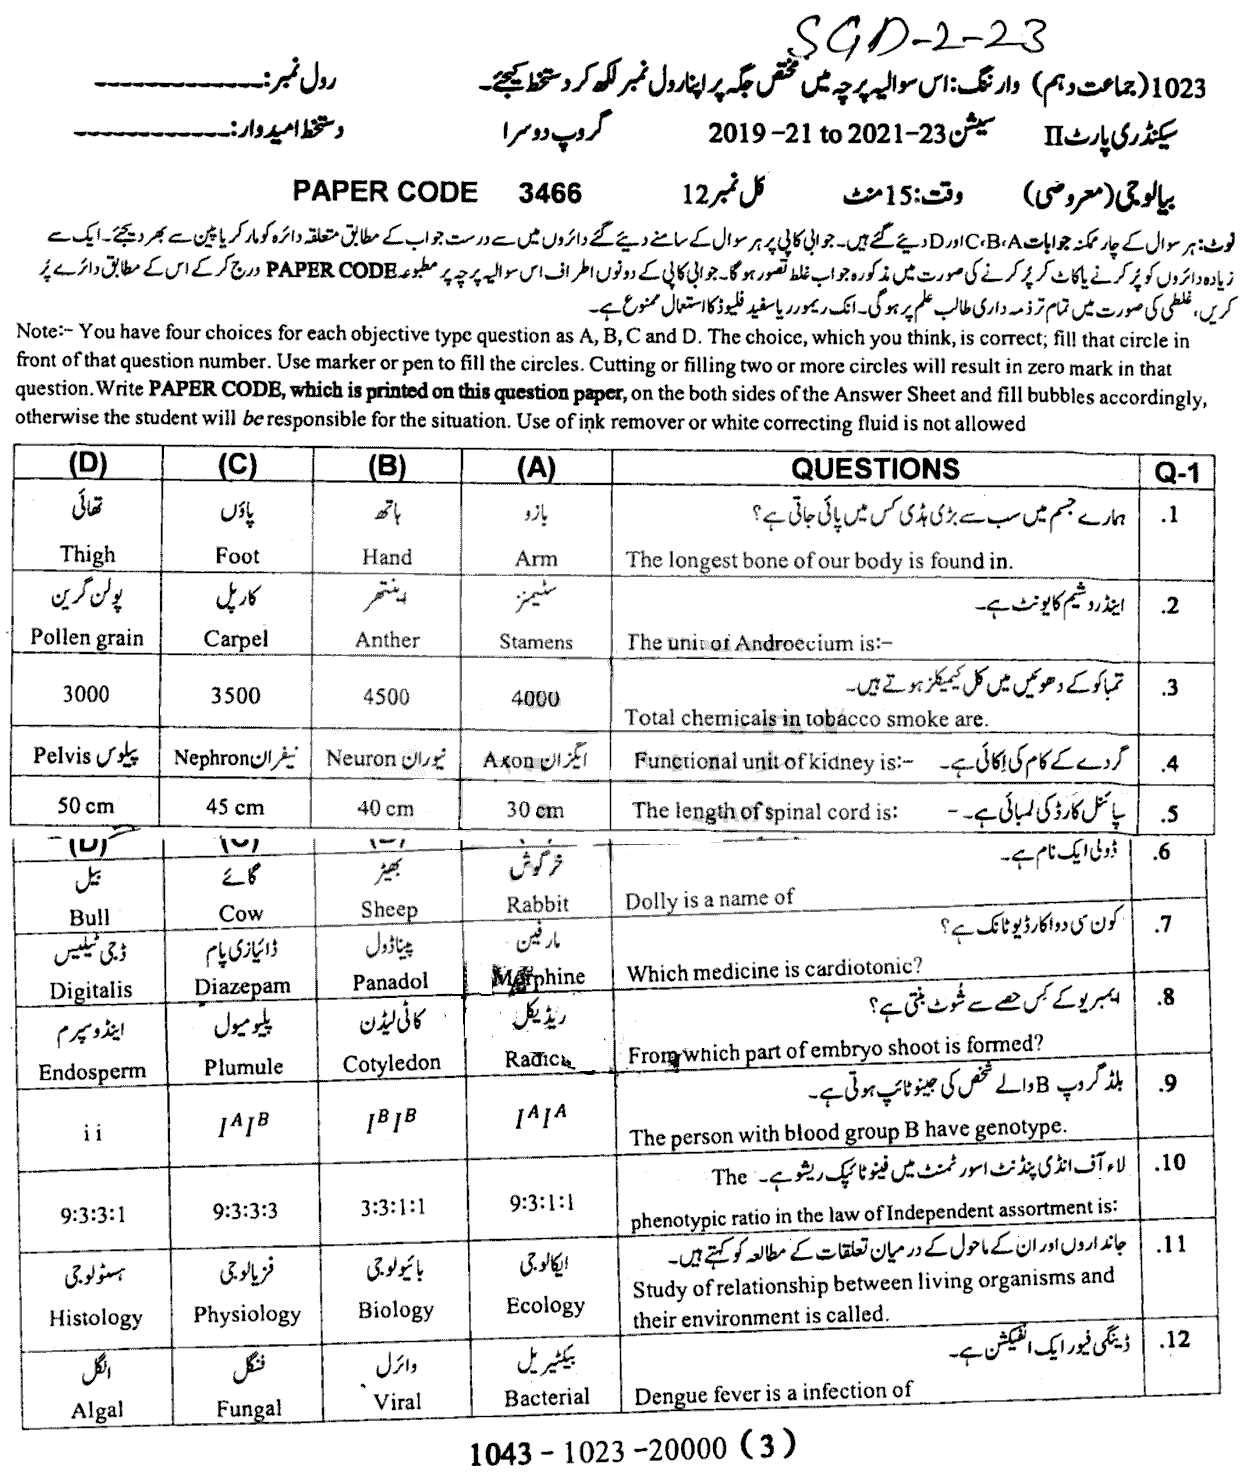 SGD-2-23
1023 (جماعت دہم) وارننگ: اس سوالیہ پرچہ میں مختص جگہ پر اپنا رول نمبر لکھ کر دستخط کیجئے۔ رول نمبر: ____________
سیکنڈری پارٹ II سیشن 2019 –21 to 2021–23 گروپ دوسرا دستخط امیدوار: ____________
بیالوجی (معروضی) وقت: 15 منٹ کل نمبر 12 PAPER CODE 3466
نوٹ: ہر سوال کے چار ممکنہ جوابات C، B، A اور D دیئے گئے ہیں۔ جوابی کاپی پر ہر سوال کے سامنے دیئے گئے دائروں میں سے درست جواب کے مطابق متعلقہ دائرہ کو مارکر یا پین سے بھر دیجئے۔ ایک سے
زیادہ دائروں کو پُر کرنے یا کاٹ کر پُر کرنے کی صورت میں مذکورہ جواب غلط تصور ہوگا۔ جوابی کاپی کے دونوں اطراف اس سوالیہ پرچہ پر مطبوعہ PAPER CODE درج کر کے اس کے مطابق دائرے پُر
کریں، غلطی کی صورت میں تمام تر ذمہ داری طالب علم پر ہوگی۔ انک ریمور ریا سفید فلیوڈ کا استعمال ممنوع ہے۔
Note:- You have four choices for each objective type question as A, B, C and D. The choice, which you think, is correct; fill that circle in
front of that question number. Use marker or pen to fill the circles. Cutting or filling two or more circles will result in zero mark in that
question. Write PAPER CODE, which is printed on this question paper, on the both sides of the Answer Sheet and fill bubbles accordingly,
otherwise the student will be responsible for the situation. Use of ink remover or white correcting fluid is not allowed
(D) (C) (B) (A) QUESTIONS Q-1
تھائی پاؤں ہاتھ بازو ہمارے جسم میں سب سے بڑی ہڈی کس میں پائی جاتی ہے؟ .1
Thigh Foot Hand Arm The longest bone of our body is found in.
پولن گرین کارپل اینتھر سٹیمنز اینڈروشیم کا یونٹ ہے۔ .2
Pollen grain Carpel Anther Stamens The unit of Androecium is:–
3000 3500 4500 4000 تمباکو کے دھوئیں میں کل کیمیکلز ہوتے ہیں۔ .3
Total chemicals in tobacco smoke are.
Pelvis پیلوس Nephron نیفران Neuron نیوران Axon ایگزان Functional unit of kidney is:– گردے کے کام کی اکائی ہے۔ .4
50 cm 45 cm 40 cm 30 cm The length of spinal cord is: سپائنل کارڈ کی لمبائی ہے۔ – .5
(D) (C)
بیل گائے بھیڑ خرگوش ڈولی ایک نام ہے۔ .6
Bull Cow Sheep Rabbit Dolly is a name of
ڈجی ٹیلیس ڈائیازی پام پیناڈول مارفین کون سی دوا کارڈیوٹانک ہے؟ .7
Digitalis Diazepam Panadol Morphine Which medicine is cardiotonic?
اینڈوسپرم پلیومیول کاٹی لیڈن ریڈیکل ایمبریو کے کس حصے سے شُوٹ بنتی ہے؟ .8
Endosperm Plumule Cotyledon From which part of embryo shoot is formed?
بلڈ گروپ B والے شخص کی جینو ٹائپ ہوتی ہے۔ .9
i i I^A I^B I^B I^B I^A I^A The person with blood group B have genotype.
لاء آف انڈی پنڈنٹ اسورٹمنٹ میں فینو ٹائپک ریشو ہے۔ The .10
9:3:3:1 9:3:3:3 3:3:1:1 9:3:1:1 phenotypic ratio in the law of Independent assortment is:
ہسٹولوجی فزیالوجی بائیولوجی ایکالوجی جانداروں اور ان کے ماحول کے درمیان تعلقات کے مطالعہ کو کہتے ہیں۔ .11
Histology Physiology Biology Ecology Study of relationship between living organisms and
their environment is called.
الگل فنگل وائرل بیکٹیریل ڈینگی فیور ایک انفیکشن ہے۔ .12
Algal Fungal Viral Bacterial Dengue fever is a infection of
1043 – 1023 –20000 (3)